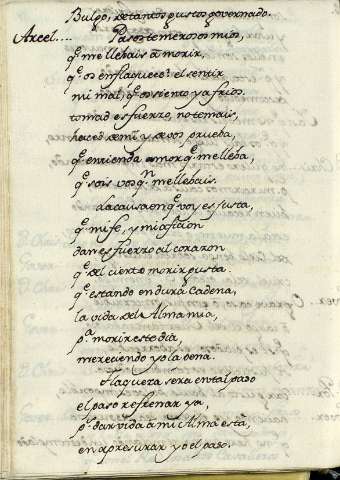 Vulgo, de tantos gustos governado.
Arcel.... Pasos temerosos mios,
q.e me llebais a morir,
q.e os enflaqueze? el sentir
mi mal; q.e os siento ya frios.
tomad esfuerzo, no temais,
haced de mi, y de vos prueba,
q.e entienda amor q.e me lleba,
q.e sois vos q.n me llebais.
La causa en q.e voy es justa,
q.e mi fe, y mi aficion
dan esfuerzo al corazon
q.e del cierto morir gusta.
q.e estando en dura cadena,
la vida del Alma mia,
p.a morir este dia,
mereciendo yo la pena.
Flaqueza sera en tal paso
el paso refrenar ya,
p.r dar vida a mi Alma está,
en apresurar yo el paso.